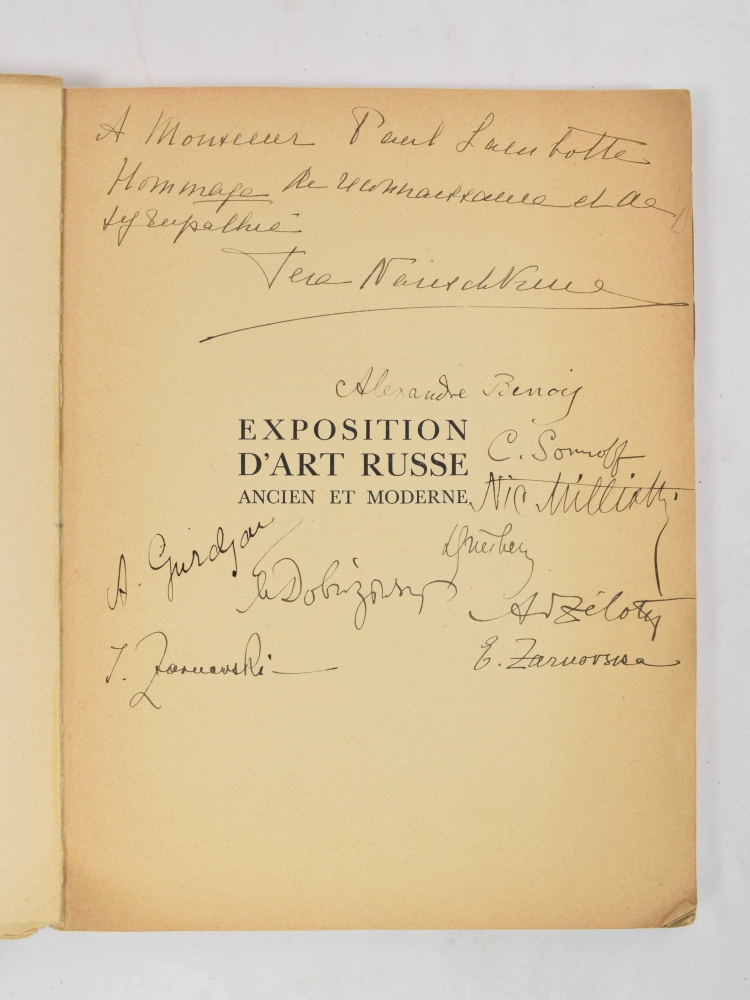 A Monsieur Paul Lambotte
Hommage de reconnaissance et de
sympathie
Vera Narischkine
Alexandre Benois
EXPOSITION
D'ART RUSSE
ANCIEN ET MODERNE
C. Somoff
Nic Milliotti
A. Gurdjan
A. Ziloty
J. Zarnovski
E. Zarnovska